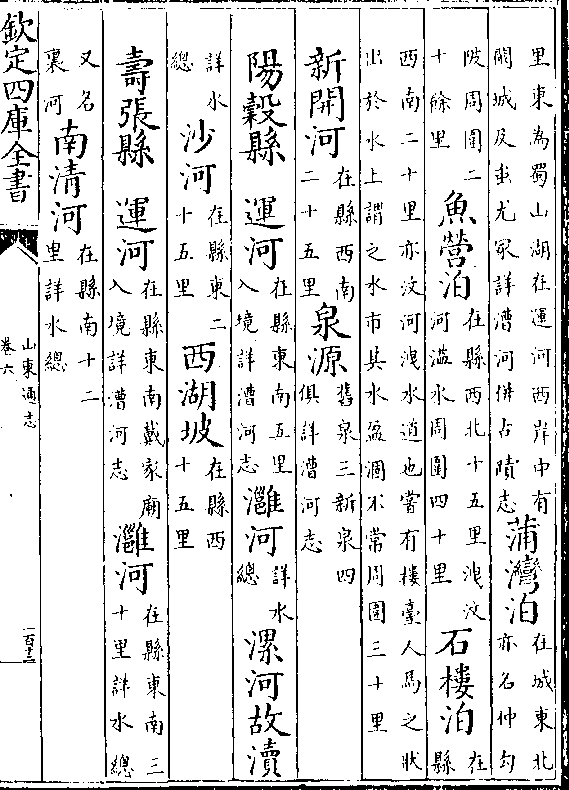 里東為蜀山湖在運河西岸中有
關城及蚩尤冢詳漕河併古蹟志
蒲灣泊
在城東北
亦名仲勾
陂周圍二
十餘里
魚營泊
在縣西北十五里洩汶
河濫水周圍四十里
石樓泊
在
縣
西南二十里亦汶河洩水道也嘗有樓臺人馬之狀
出於水上謂之水市其水盈涸不常周圍三十里
新開河
在縣西南
二十五里
泉源
舊泉三新泉四
俱詳漕河志
陽穀縣 運河
在縣東南五里
入境詳漕河志
灉河
詳水
總
漯河故瀆
詳水
總
沙河
在縣東二
十五里
西湖坡
在縣西
十五里
壽張縣 運河
在縣東南戴家廟
入境詳漕河志
灉河
在縣東南三
十里詳水總
又名
裏河
南清河
在縣南十二
里詳水總
欽定四庫全書
山東通志
卷六